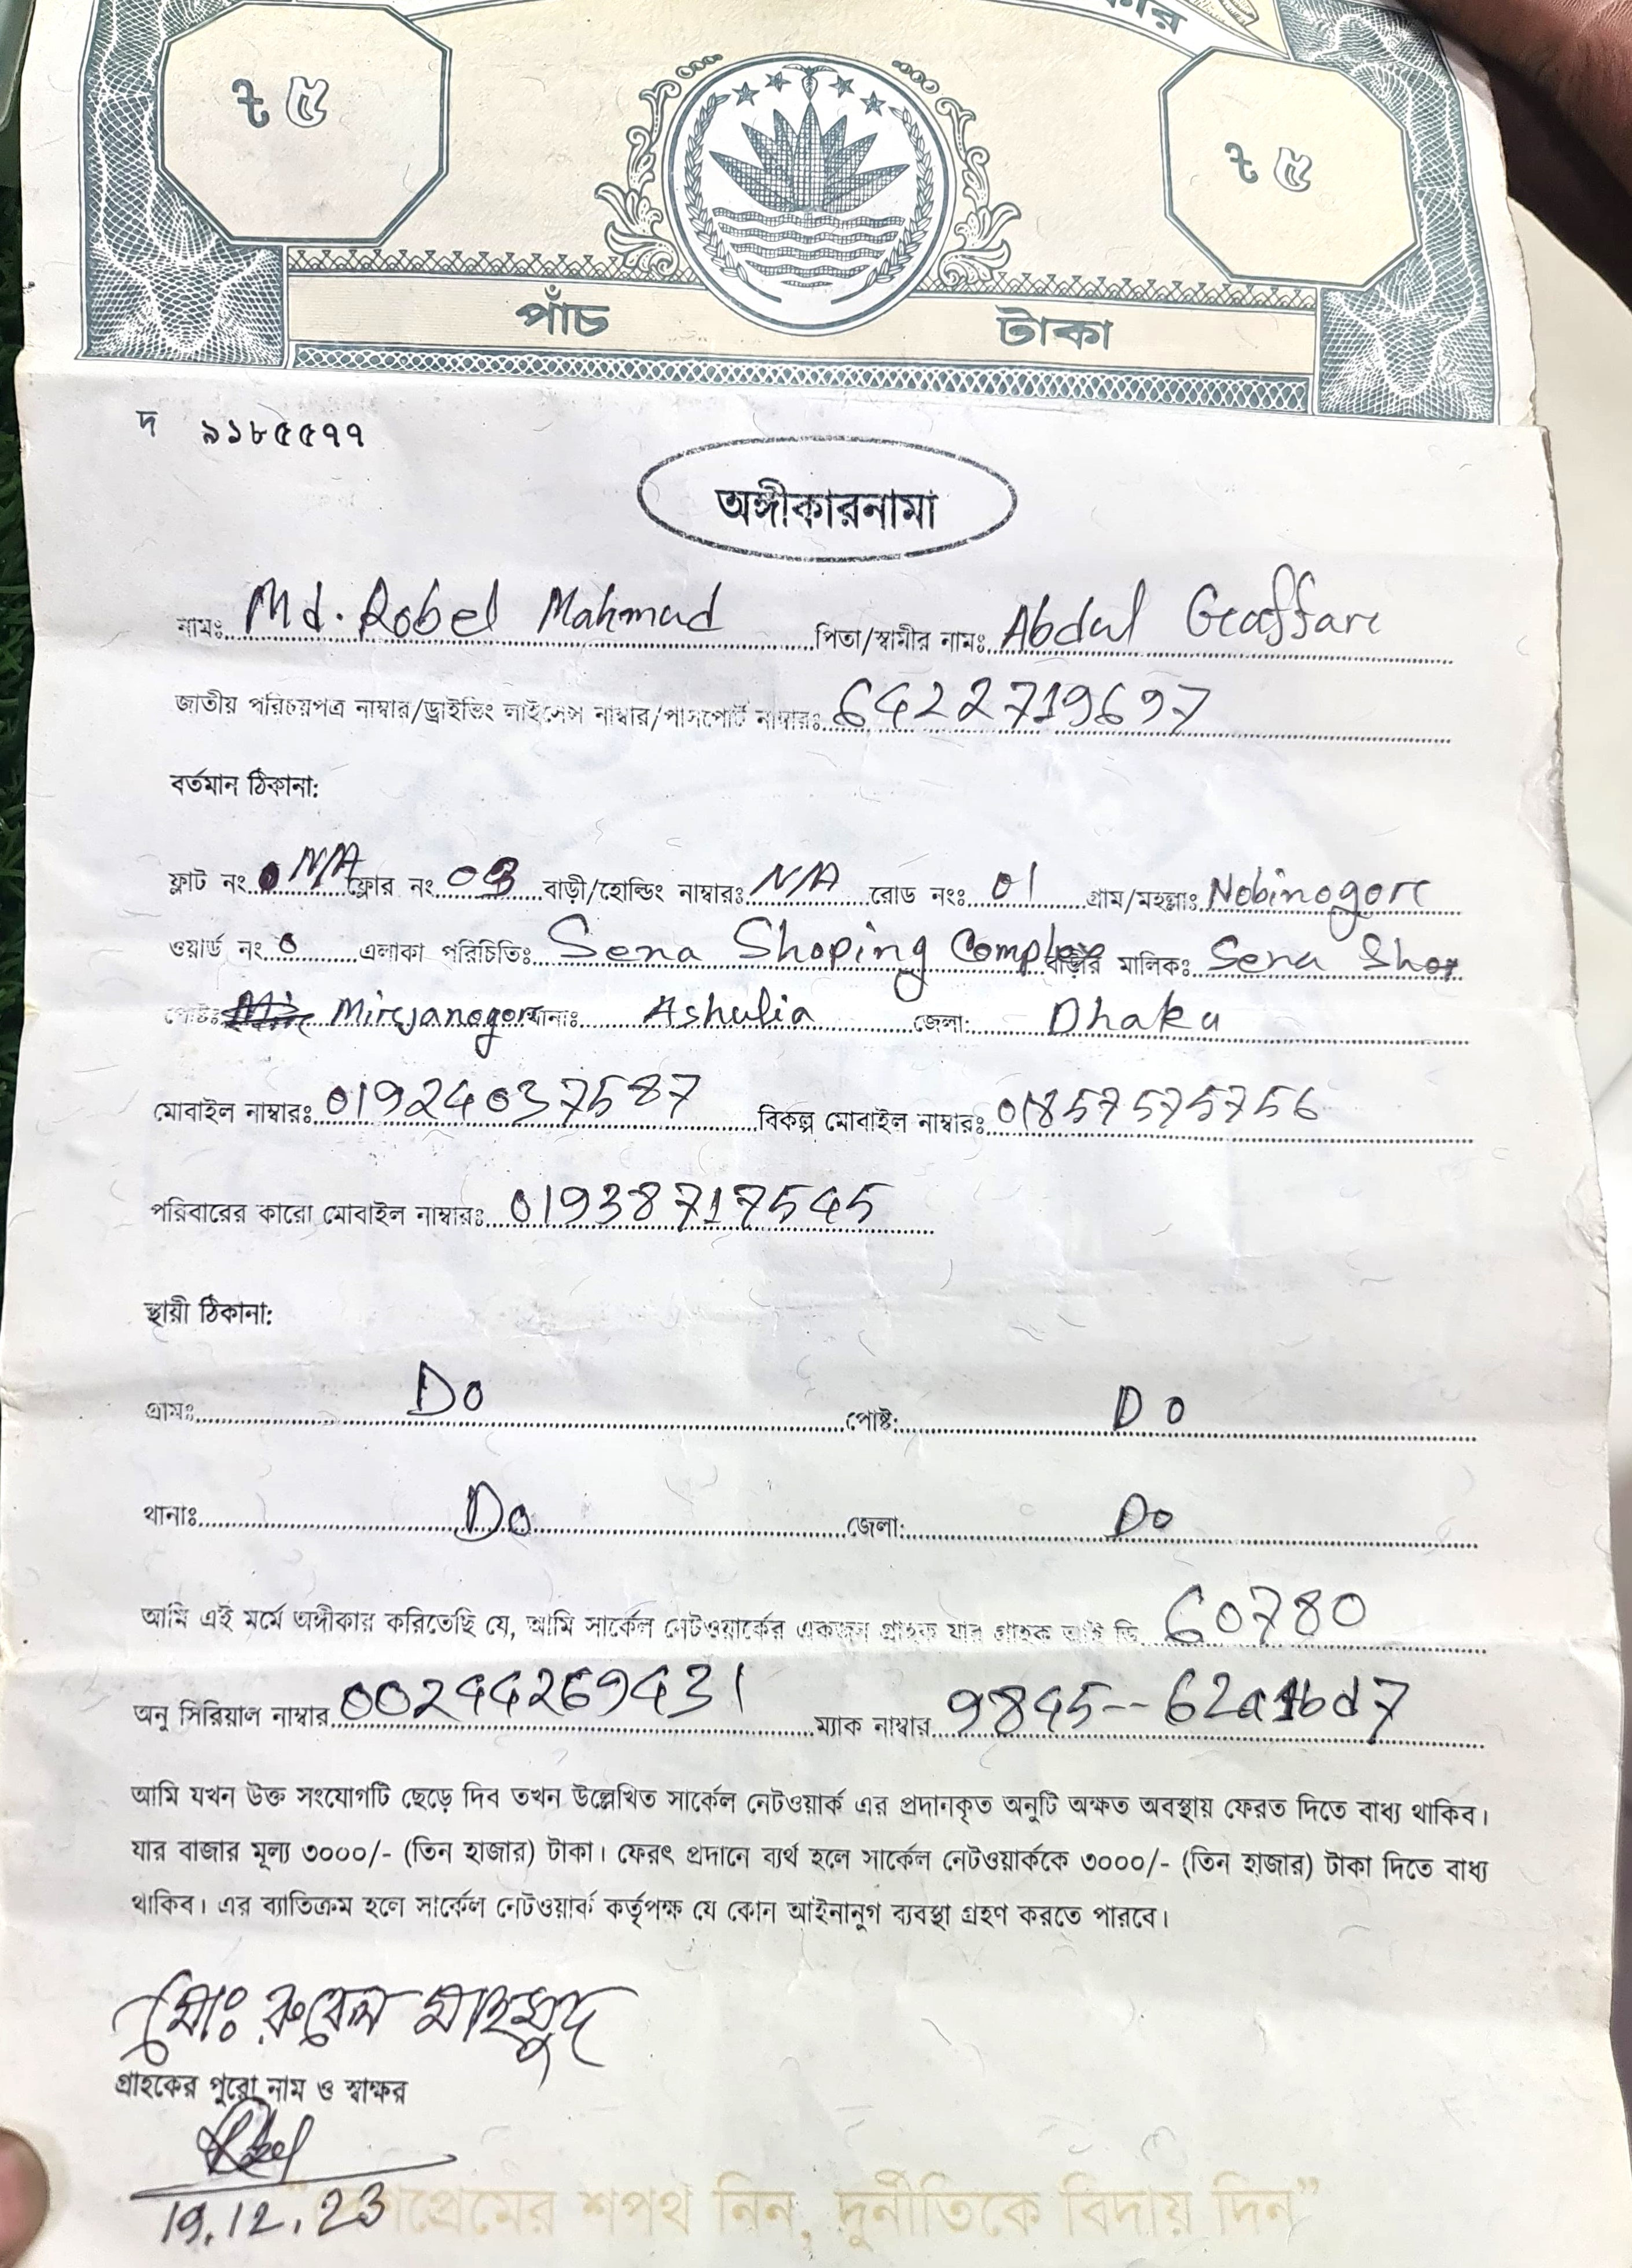 ৳ ৫ ৳ ৫
পাঁচ টাকা
দ ৯১৮৫৫৭৭
অঙ্গীকারনামা
নামঃ Md. Robel Mahmud পিতা/স্বামীর নামঃ Abdul Gaffar
জাতীয় পরিচয়পত্র নাম্বার/ড্রাইভিং লাইসেন্স নাম্বার/পাসপোর্ট নাম্বারঃ 6422719697
বর্তমান ঠিকানা:
ফ্লাট নং N/A ফ্লোর নং 03 বাড়ী/হোল্ডিং নাম্বারঃ N/A রোড নংঃ 01 গ্রাম/মহল্লাঃ Nobinogor
ওয়ার্ড নং 0 এলাকা পরিচিতিঃ Sena Shoping Complex বাড়ীর মালিকঃ Sena
পোষ্টঃ Mirjanogor থানাঃ Ashulia জেলা: Dhaka
মোবাইল নাম্বারঃ 01924037587 বিকল্প মোবাইল নাম্বারঃ 01857575756
পরিবারের কারো মোবাইল নাম্বারঃ 01938717545
স্থায়ী ঠিকানা:
গ্রামঃ Do পোষ্ট: Do
থানাঃ Do জেলা: Do
আমি এই মর্মে অঙ্গীকার করিতেছি যে, আমি সার্কেল নেটওয়ার্কের একজন গ্রাহক যার গ্রাহক আই ডি 60780
অনু সিরিয়াল নাম্বার 00244269431 ম্যাক নাম্বার 9845--62a1bd7
আমি যখন উক্ত সংযোগটি ছেড়ে দিব তখন উল্লেখিত সার্কেল নেটওয়ার্ক এর প্রদানকৃত অনুটি অক্ষত অবস্থায় ফেরত দিতে বাধ্য থাকিব।
যার বাজার মূল্য ৩০০০/- (তিন হাজার) টাকা। ফেরৎ প্রদানে ব্যর্থ হলে সার্কেল নেটওয়ার্ককে ৩০০০/- (তিন হাজার) টাকা দিতে বাধ্য
থাকিব। এর ব্যাতিক্রম হলে সার্কেল নেটওয়ার্ক কর্তৃপক্ষ যে কোন আইনানুগ ব্যবস্থা গ্রহণ করতে পারবে।
মোঃ রুবেল মাহমুদ
গ্রাহকের পুরো নাম ও স্বাক্ষর
19.12.23
শপথ নিন, দুর্নীতিকে বিদায় দিন”